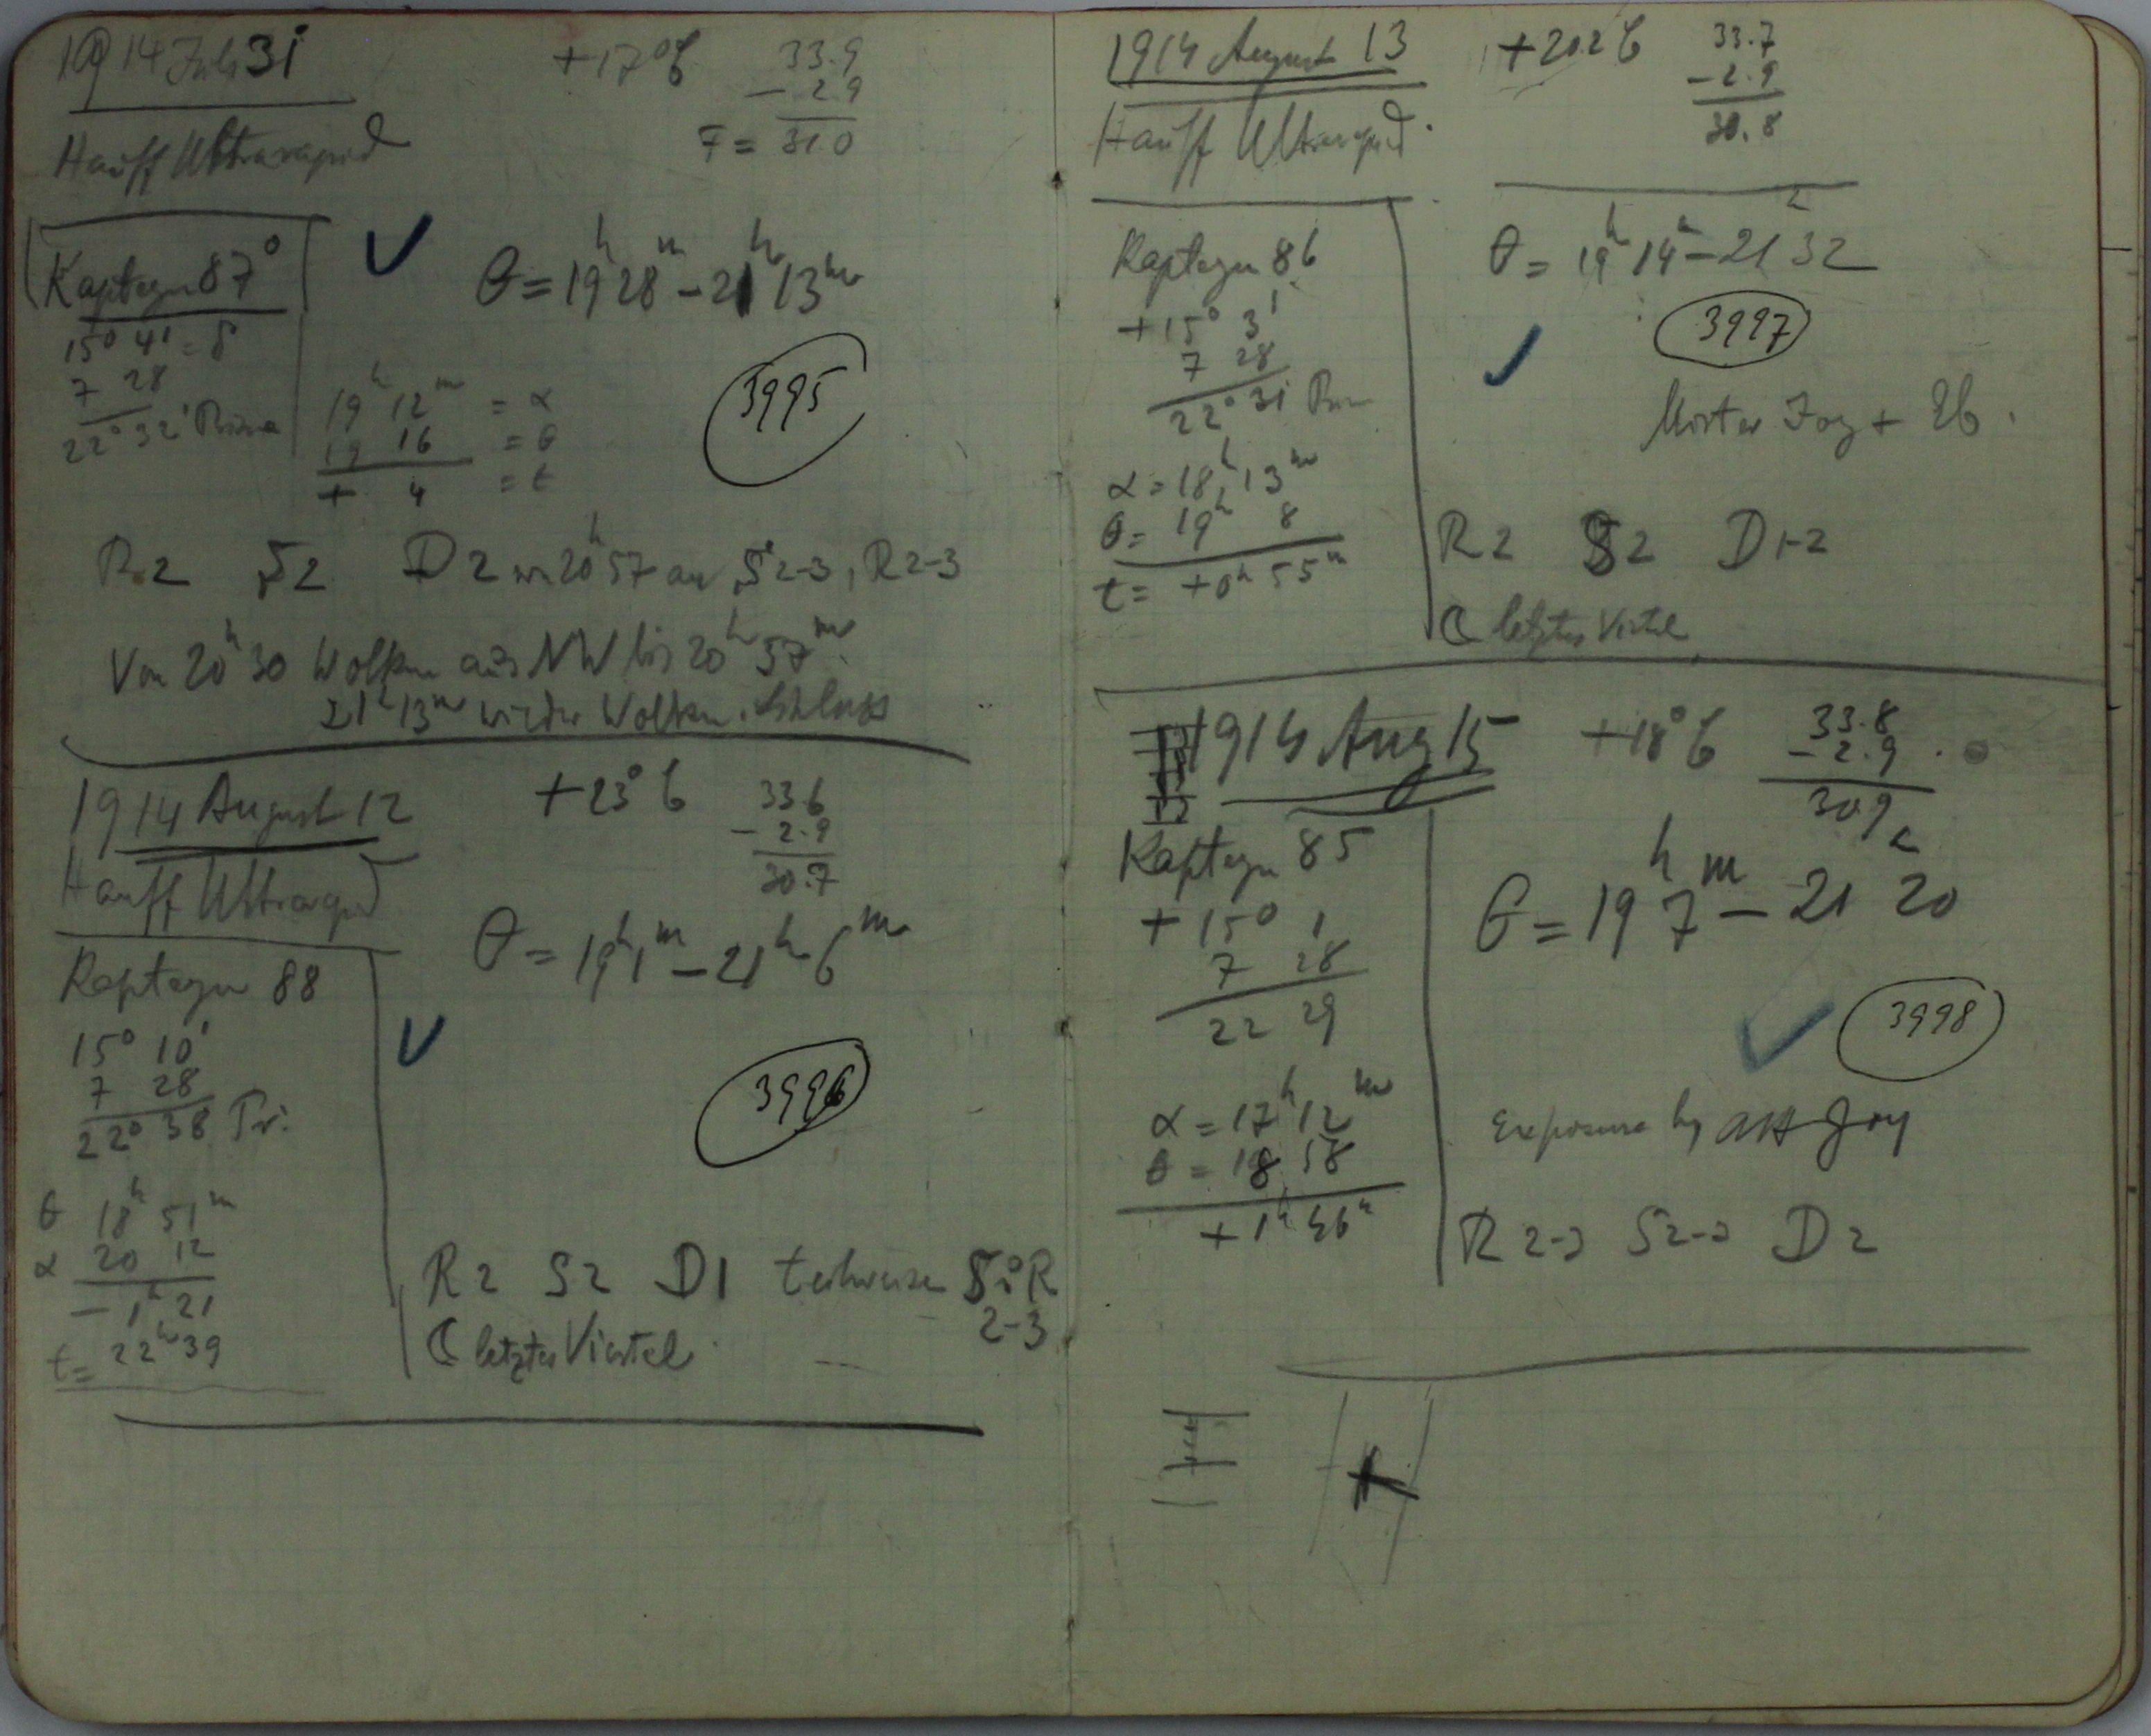 1914 Juli 31 +17°C 33.9
- 2 9
F = 31 0
Hauff Ultrarapid
Kapteyn 87°
θ = 19h 28m - 21h 13m
15° 41 = δ
7 28
22° 32'
3995
19h 12m = α
19 16 = θ
+ 4 = t
R 2 S 2 D 2 von 20h 57 an S 2-3, R 2-3
Von 20h 30 Wolken aus NW bis 20h 57m
21h 13m wieder Wolken. Schluss
1914 August 12 +23°C 33.6
- 2.9
30.7
Hauff Ultrarapid
θ = 19h 1m - 21h 6m
Kapteyn 88
15° 10'
7 28
22° 38 Pr.
3996
θ 18h 51m
α 20 12
- 1h 21
t = 22h 39
R 2 S 2 D 1 teilweise S i R
2-3
☾ letztes Viertel
1914 August 13 +20.2 C 33.7
- 2.9
30.8
Hauff Ultrarapid.
Kapteyn 86
θ = 19h 14m - 21h 32
+15° 3'
7 28
22° 31
3997
Mister Joy + Eb.
α = 18h 13m
θ = 19h 8
t = +0h 55m
R 2 S 2 D 1-2
☾ letztes Viertel
1914 Aug 15 +18°C 33.8
- 2.9
30 9
Kapteyn 85
θ = 19h 7m - 21h 20
+ 15° 1
7 28
22 29
3998
α = 17h 12m
θ = 18 58
+ 1h 46m
Exposure by AH Joy
R 2-3 S 2-3 D 2